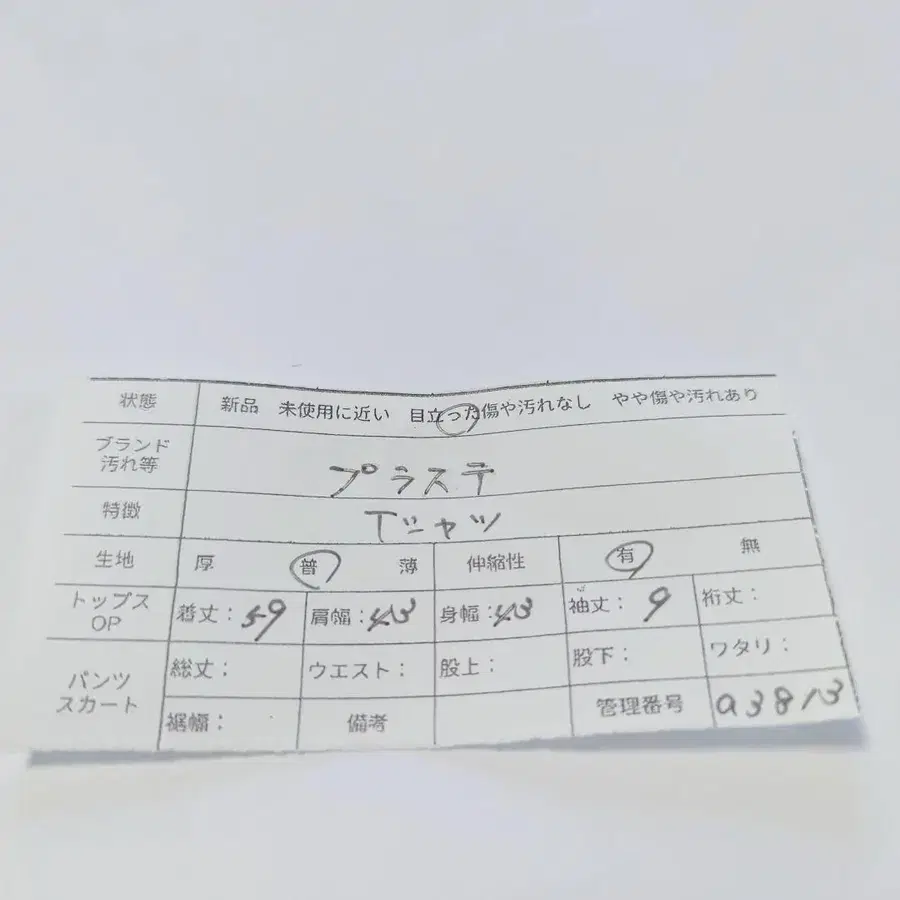 状態 新品 未使用に近い 目立った傷や汚れなし やや傷や汚れあり
ブランド
汚れ等 プラステ
特徴 Tシャツ
生地 厚 普 薄 伸縮性 有 無
トップス
OP 着丈：59 肩幅：43 身幅：43 袖丈：9 裄丈：
パンツ
スカート 総丈： ウエスト： 股上： 股下： ワタリ：
裾幅： 備考 管理番号 a3813